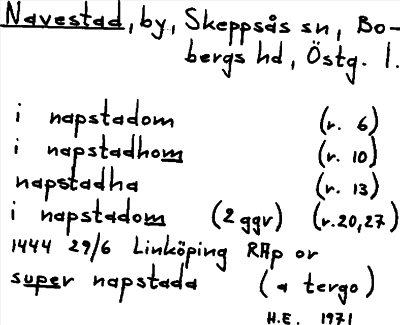 Navestad, by, Skeppsås sn, Bo-
bergs hd, Östg. l.
i napstadom (r. 6)
i napstadhom (r. 10)
napstadha (r. 13)
i napstadom (2 ggr) (r. 20, 27)
1444 29/6 Linköping RAp or
super napstada (a tergo)
H.E. 1971